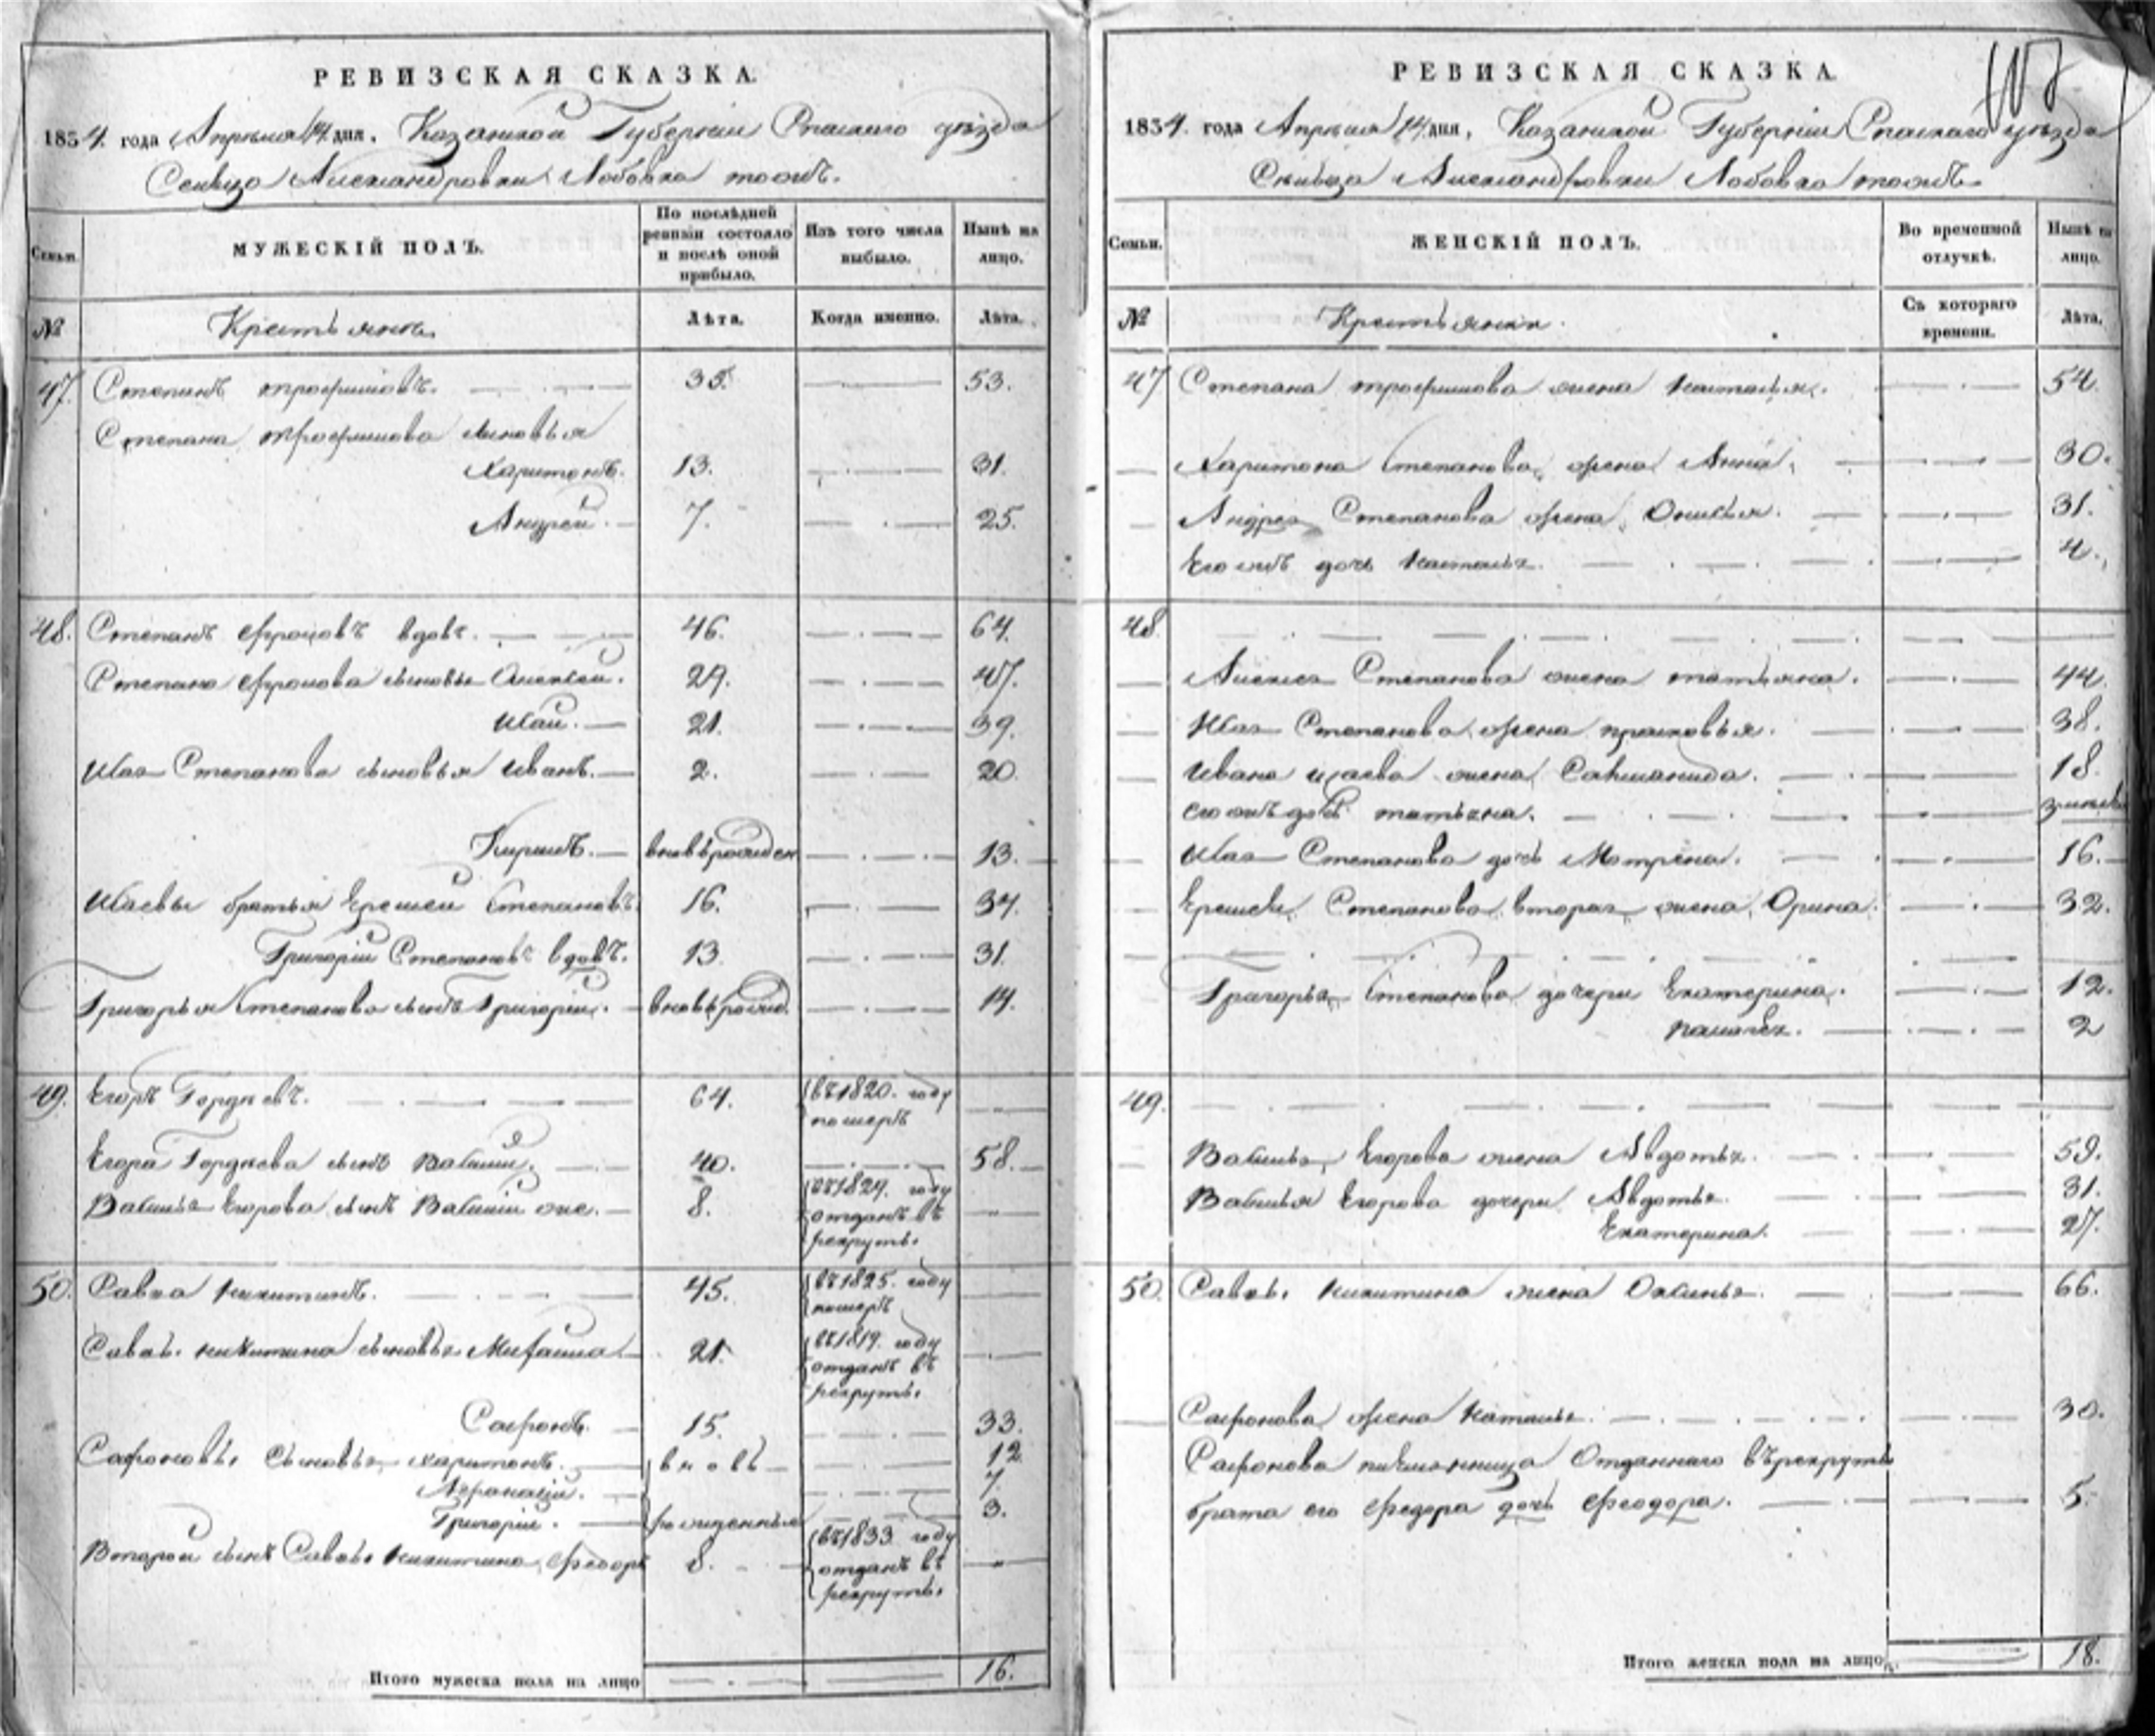 РЕВИЗСКАЯ СКАЗКА.
1834 года Апреля 14 дня, Казанской Губернии Спаскаго уезда
Сельцо Александровки Лобовка тожъ.
Семьи. МУЖЕСКІЙ ПОЛЪ. По послѣдней ревизіи состояло и послѣ оной прибыло. Изъ того числа выбыло. Нынѣ на лицо.
№ Крестьяне. Лѣта. Когда именно. Лѣта.
47. Степанъ трофимовъ. 35. 53.
Степана трофимова сыновья
Харитонъ. 13. 31.
Андрей. 7. 25.
48. Степанъ фроловъ вдовъ. 46. 64.
Степана фролова сыновья Алексей. 29. 47.
Исай. 21. 39.
Исая Степанова сыновья Иванъ. 2. 20.
вновьрожден 13.
Исаевы братья Еремей Степановъ. 16. 34.
Григорій Степановъ вдовъ. 13. 31.
Григорья Степанова сынъ Григорей. вновьрожд. 14.
49. Егоръ Гордѣевъ. 64. въ 1820. году померъ
Егора Гордѣева сынъ Василий. 40. 58.
Василья Егорова сынъ Василій же. 8. въ 1829. году отданъ въ рекруты.
50. Савва никитинъ. 45. въ 1825. году померъ
Саввы никитина сыновья Михайла 21. въ 1819. году отданъ въ рекруты.
Сафронъ. 15. 33.
Сафроновы сыновья харитонъ. вновь 12
Афонасій. 7.
Григорій. рожденныя 3.
Второй сынъ Саввы Никитина, Федоръ 8. въ 1833 году отданъ въ рекруты.
Итого мужеска пола на лицо 16.
РЕВИЗСКАЯ СКАЗКА.
1834. года Апреля 14 дня, Казанской Губерніи Спаскаго уезда
Сельцо Александровки Лобовка тожъ
Семьи. ЖЕНСКІЙ ПОЛЪ. Во временной отлучкѣ. Нынѣ на лицо.
№ Крестьянки. Съ котораго времени. Лѣта.
47 Степана трофимова жена Наталья. 54.
Харитона Степанова, жена Анна, 30.
Андрея Степанова жена 31.
Его жъ дочь Наталья. 4.
48.
Алексея Степанова жена татьяна. 44.
Исая Степанова жена прасковья. 38.
Ивана исаева жена 18.
его жъ дочь татьяна.
Исая Степанова дочь Матрена. 16.
Еремея Степанова вторая жена, Орина. 32.
Григорья Степанова дочери Екатерина. 12.
2
49.
Василья Егорова жена Авдотья. 59.
Василья Егорова дочери Авдотья. 31.
Екатерина. 27.
50. Саввы. никитина жена Оксинья. 66.
Сафронова жена Наталья. 30.
Сафронова племянница Отданнаго въ рекруты
брата его Федора дочь Феодора. 5.
Итого женска пола на лицо. 18.